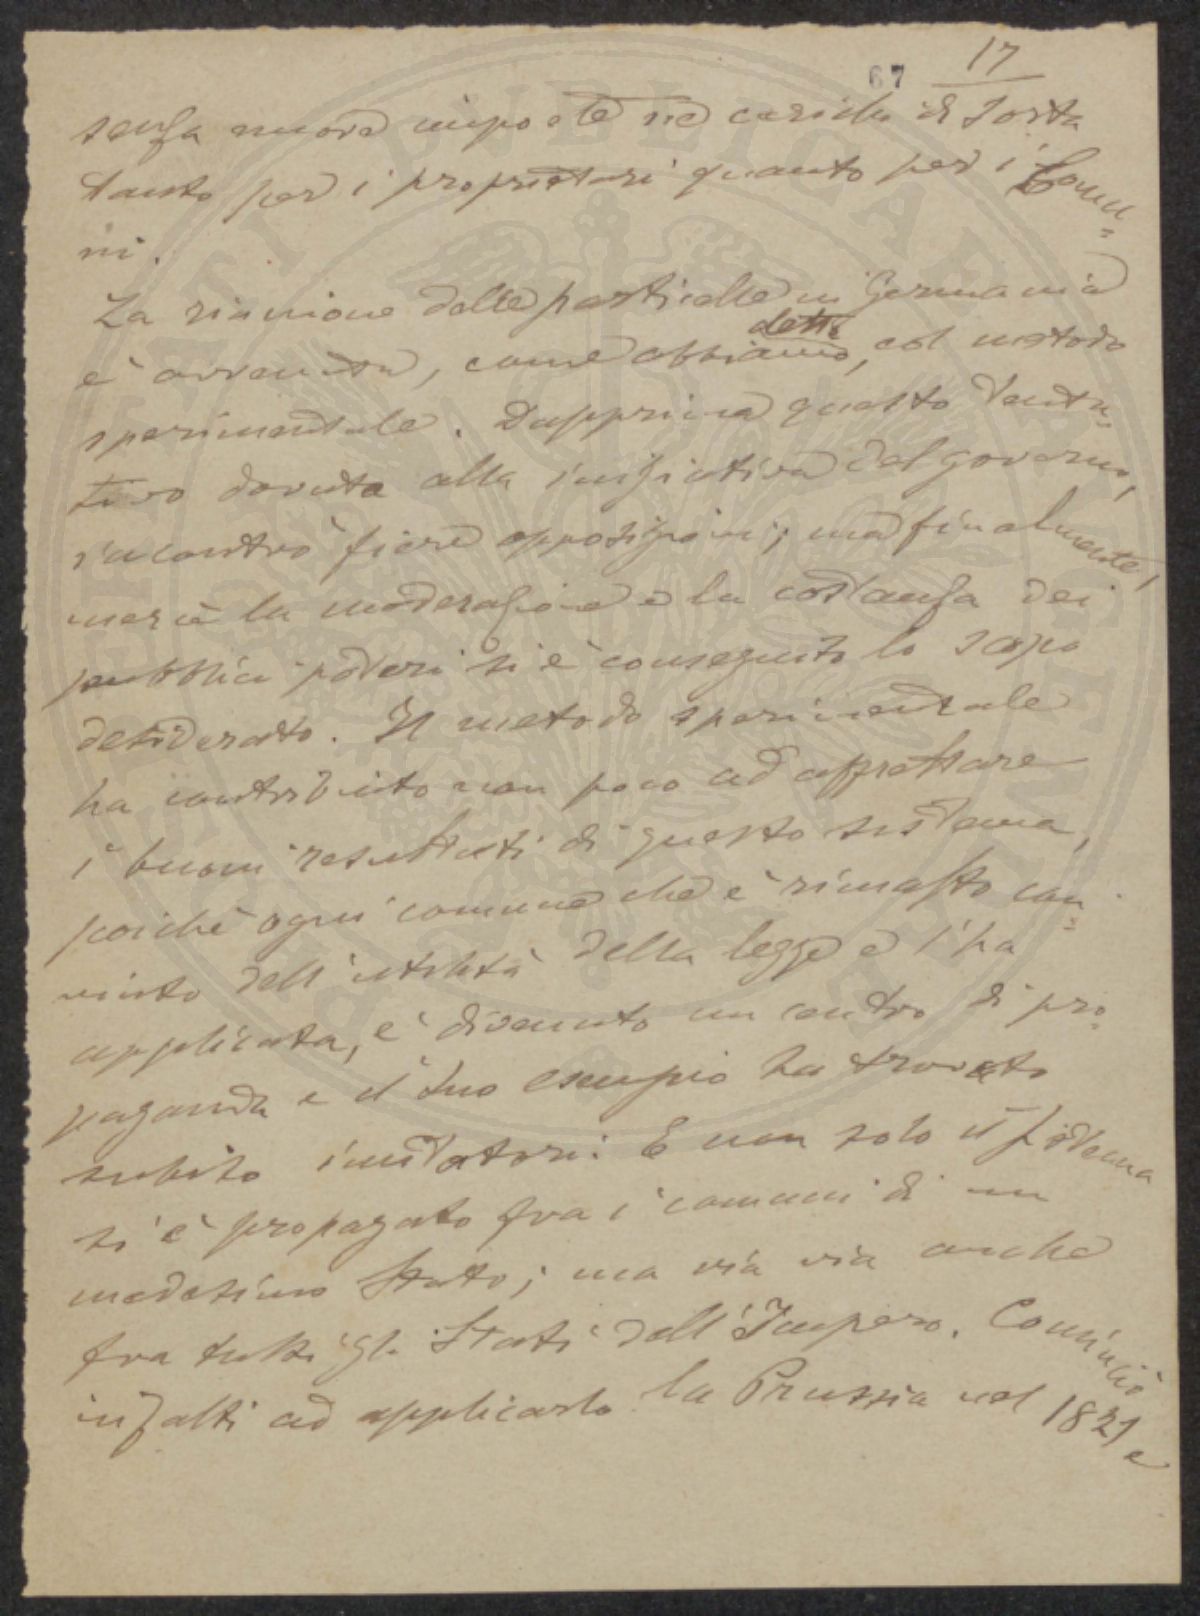 67 17
senza nuove imposte nè carichi di sorta
tanto per i proprietari quanto per i Comu=
ni.
La riunione delle particelle in Germania
è avvenuta, come abbiamo detto, col metodo
sperimentale. Dapprima questo tenta=
tivo dovuto alla iniziativa del governo,
incontrò fiere opposizioni; ma finalmente,
mercè la moderazione e la costanza dei
pubblici poteri si è conseguito lo scopo
desiderato. Il metodo sperimentale
ha contribuito non poco ad affrettare
i buoni resultati di questo sistema,
poichè ogni comune che è rimasto con=
vinto dell'utilità della legge e l'ha
applicata, è divenuto un centro di pro=
paganda e il suo esempio ha trovato
subito imitatori. E non solo il sistema
si è propagato fra i comuni di un
medesimo Stato; ma via via anche
fra tutti gli Stati dell'Impero. Cominciò
infatti ad applicarlo la Prussia nel 1821 e